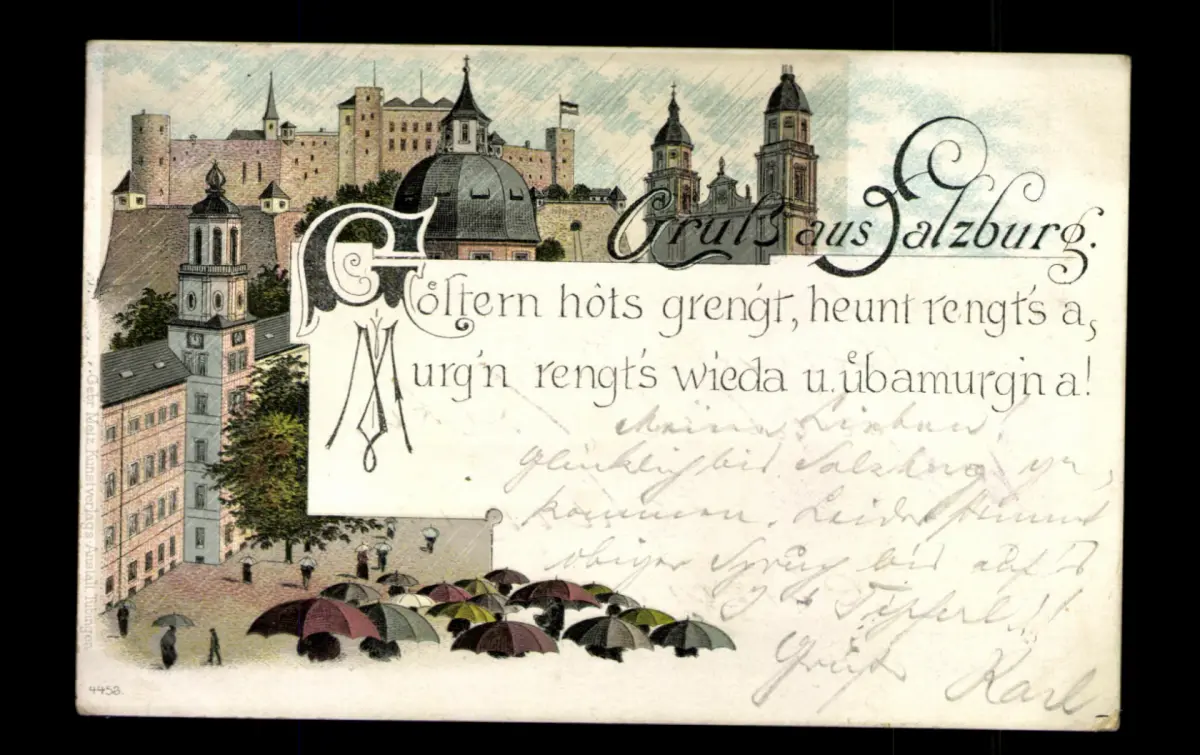 Gruß aus Salzburg.
Göstern hôts greng't, heunt rengt's a,
Murg'n rengt's wieda u. übamurg'n a!
Meine Lieben!
Glücklich bis Salzburg ge-
kommen. Leider stimmt
obiger Spruch bis auf's
Tipferl!!
Gruß Karl
4452.